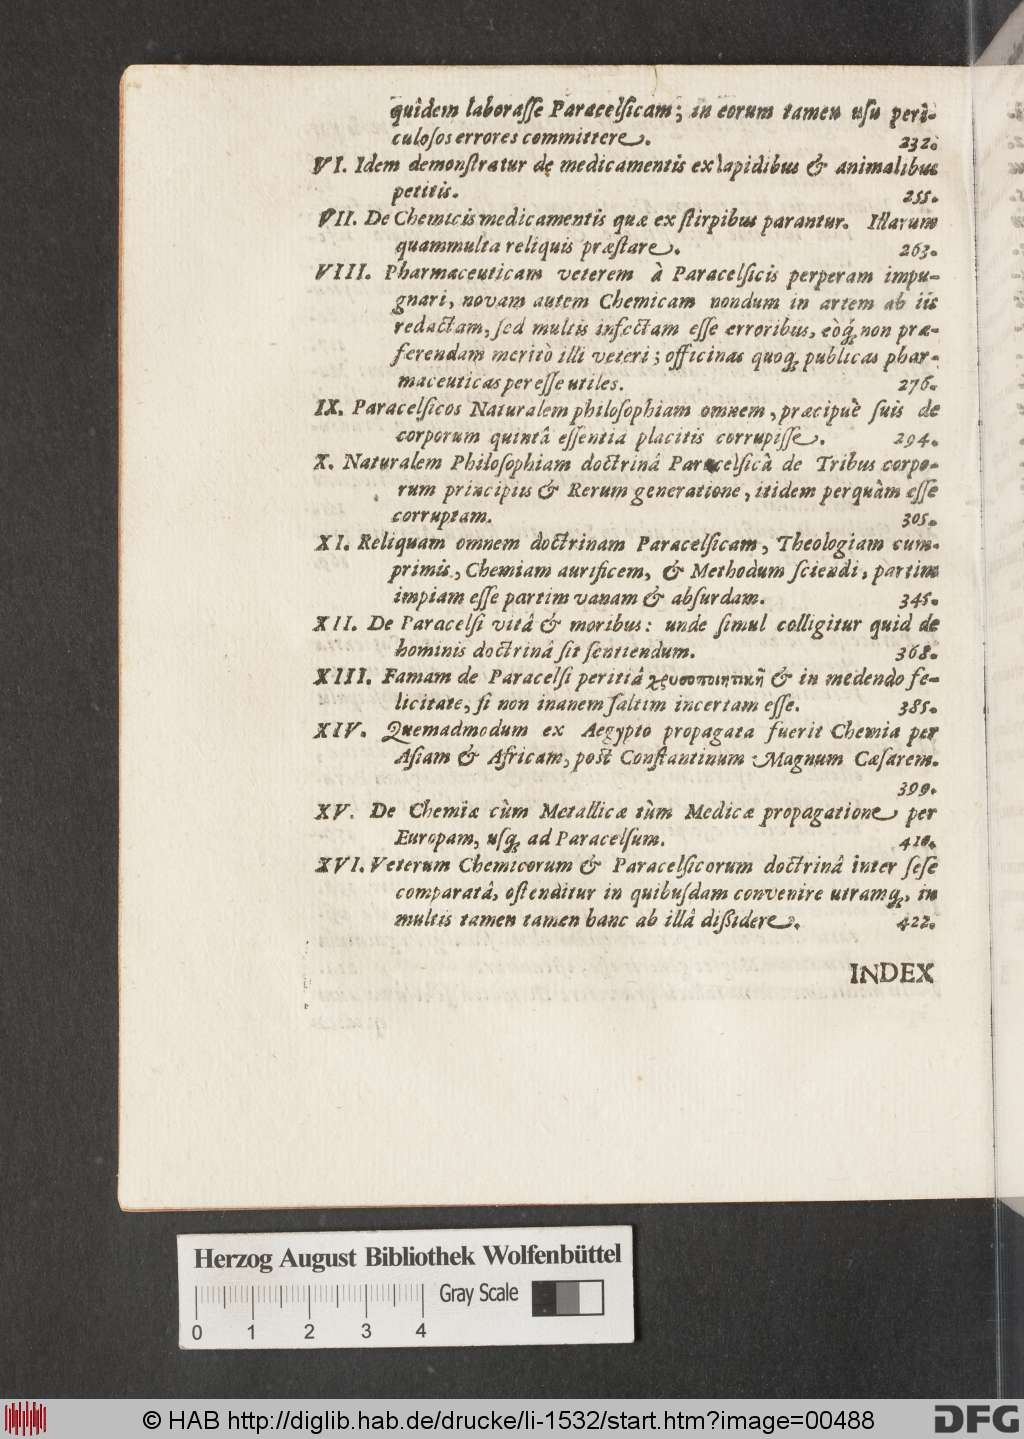 quidem laboraſſe Paracelſicam; in eorum tamen uſu peri-
culoſos errores committere. 232.
VI. Idem demonſtratur de medicamentis ex lapidibus & animalibus
petitis. 255.
VII. De Chemicis medicamentis quæ ex ſtirpibus parantur. Illarum
quammulta reliquis præſtare. 263.
VIII. Pharmaceuticam veterem à Paracelſicis perperam impu-
gnari, novam autem Chemicam nondum in artem ab iis
redactam, ſed multis infectam eſſe erroribus, eòq́; non præ-
ferendam meritò illi veteri; officinas quoq; publicas phar-
maceuticas per eſſe utiles. 276.
IX. Paracelſicos Naturalem philoſophiam omnem, præcipuè ſuis de
corporum quintâ eſſentia placitis corrupiſſe. 294.
X. Naturalem Philoſophiam doctrinâ Paracelſicâ de Tribus corpo-
rum principiis & Rerum generatione, itidem perquàm eſſe
corruptam. 305.
XI. Reliquam omnem doctrinam Paracelſicam, Theologiam cum-
primis, Chemiam aurificem, & Methodum ſciendi, partim
impiam eſſe partim vanam & abſurdam. 345.
XII. De Paracelſi vitâ & moribus: unde ſimul colligitur quid de
hominis doctrinâ ſit ſentiendum. 368.
XIII. Famam de Paracelſi peritiâ χρυσοποιητικῇ & in medendo fe-
licitate, ſi non inanem ſaltim incertam eſſe. 385.
XIV. Quemadmodum ex Aegypto propagata fuerit Chemia per
Aſiam & Africam, poſt Conſtantinum Magnum Cæſarem.
399.
XV. De Chemiæ cùm Metallicæ tùm Medicæ propagatione per
Europam, uſq; ad Paracelſum. 410.
XVI. Veterum Chemicorum & Paracelſicorum doctrinâ inter ſeſe
comparatâ, oſtenditur in quibuſdam convenire utramq;, in
multis tamen tamen hanc ab illâ dißidere. 422.
INDEX
Herzog August Bibliothek Wolfenbüttel
Gray Scale
0 1 2 3 4
© HAB http://diglib.hab.de/drucke/li-1532/start.htm?image=00488
DFG